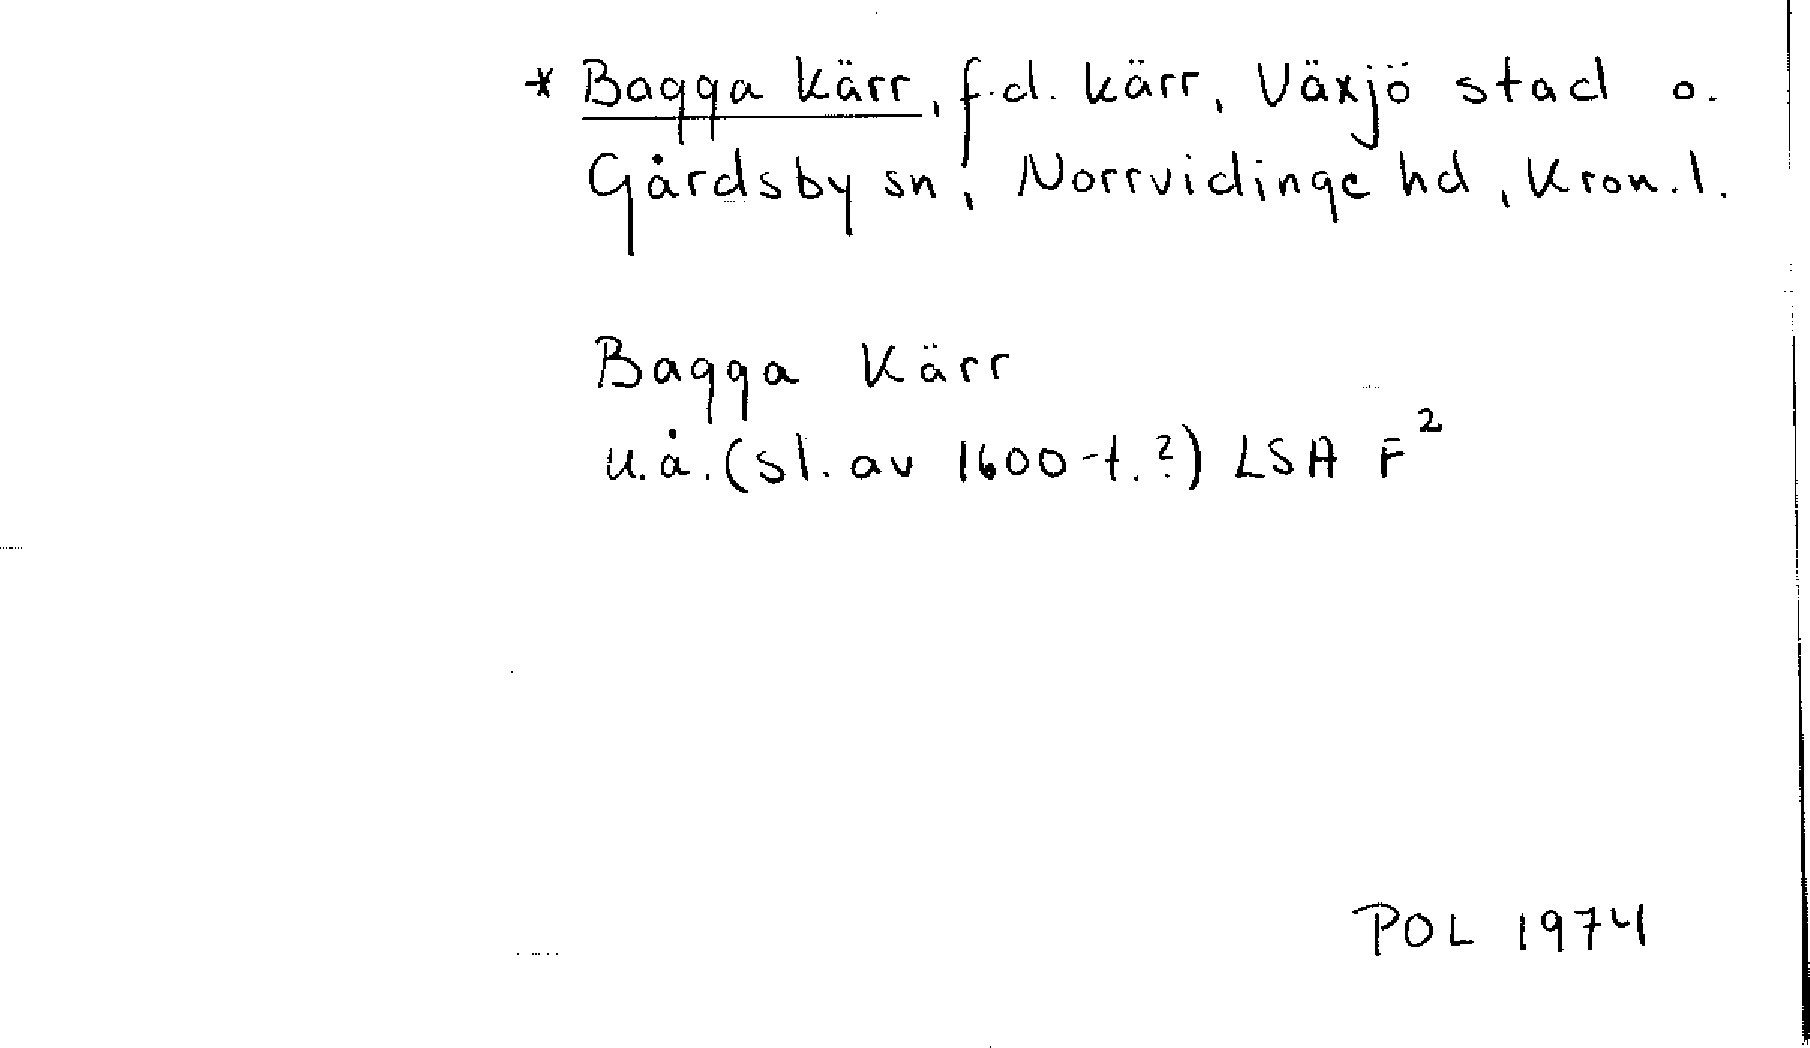 * Bagga Kärr, f.d. kärr, Växjö stad o.
Gårdsby sn, Norrvidinge hd, Kron.l.
Bagga Kärr
u.å. (sl. av 1600-t.?) LSA F²
POL 1974